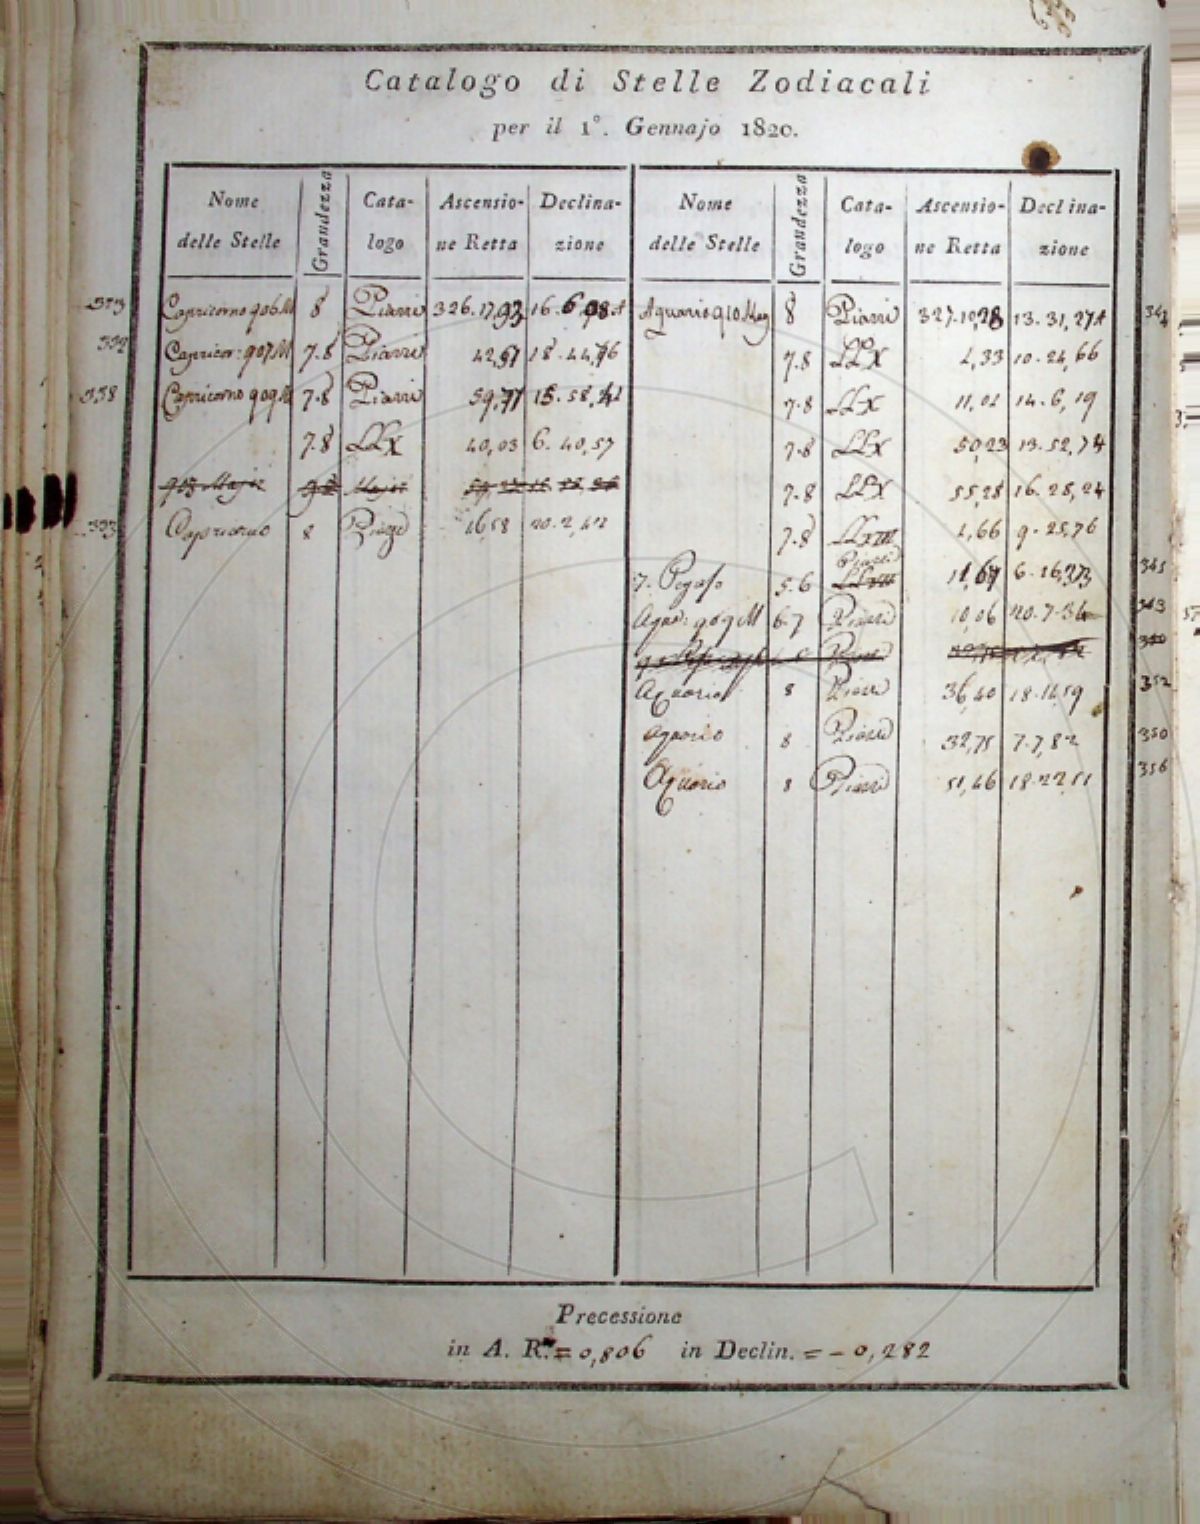 Catalogo di Stelle Zodiacali
per il 1°. Gennajo 1820.
Nome delle Stelle Grandezza Cata-logo Ascensio-ne Retta Declina-zione
Capricorno 906 M 8 Piazzi 326.17,93 16.6,98 A
Capricor: 907 M 7.8 Piazzi 42,57 18.44,76
Capricorno 909 M 7.8 Piazzi 59,77 15.58,
7.8 LLX 40,03 6.40,57
Capricorno 8 Piazzi 16,58 20.2,42
Nome delle Stelle Grandezza Cata-logo Ascensio-ne Retta Declina-zione
Aquario 910 May 8 Piazzi 327.10,28 13.31,27 A
7.8 LLX 2,33 10.24,66
7.8 LLX 11,02 14.6,19
7.8 LLX 50,23 13.52,74
7.8 LLX 55,28 16.28,24
7.8 LLXIII 2,66 9.25,76
7. Pegaso 5.6 Piazzi 11,67 6.16,
Aqua: 909 M 6.7 Piazzi 10,06 20.7,34
Aquario 8 Piazzi 36,40 18.12,59
Aquario 8 Piazzi 32,75 7.7,82
Aquario 8 Piazzi 51,46 18.22,51
345
352
350
356
Precessione
in A. R. = 0,806 in Declin. = - 0,282